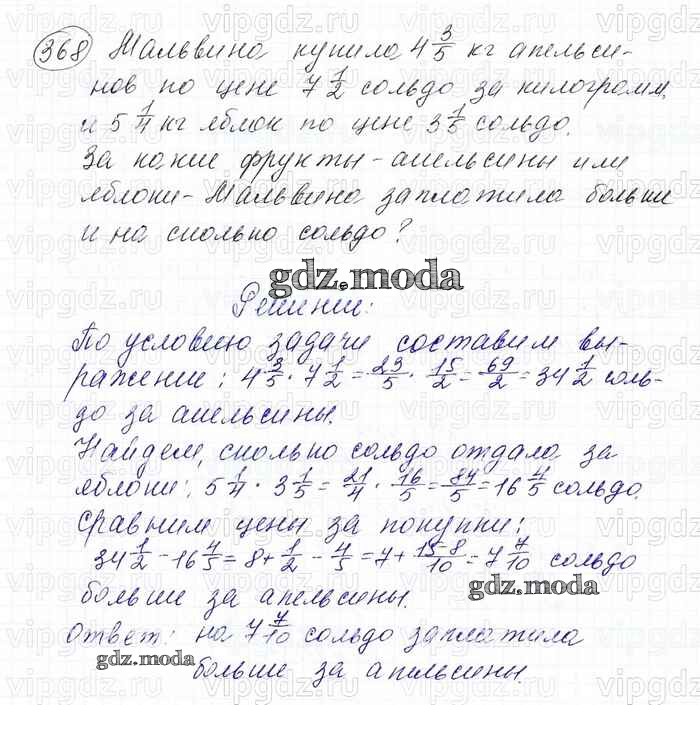 368 Мальвина купила 4 3/5 кг апельси-
нов по цене 7 1/2 сольдо за килограмм,
и 5 1/4 кг яблок по цене 3 1/5 сольдо.
За какие фрукты - апельсины или
яблоки - Мальвина заплатила больше
и на сколько сольдо?
gdz.moda
Решение:
По условию задачи составим вы-
ражение: 4 3/5 · 7 1/2 = 23/5 · 15/2 = 69/2 = 34 1/2 соль-
до за апельсины.
Найдем, сколько сольдо отдала за
яблоки: 5 1/4 · 3 1/5 = 21/4 · 16/5 = 84/5 = 16 4/5 сольдо.
Сравним цены за покупки:
34 1/2 - 16 4/5 = 8 + 1/2 - 4/5 = 7 + 15-8/10 = 7 7/10 сольдо
больше за апельсины.
Ответ: на 7 7/10 сольдо заплатила
gdz.moda
больше за апельсины.